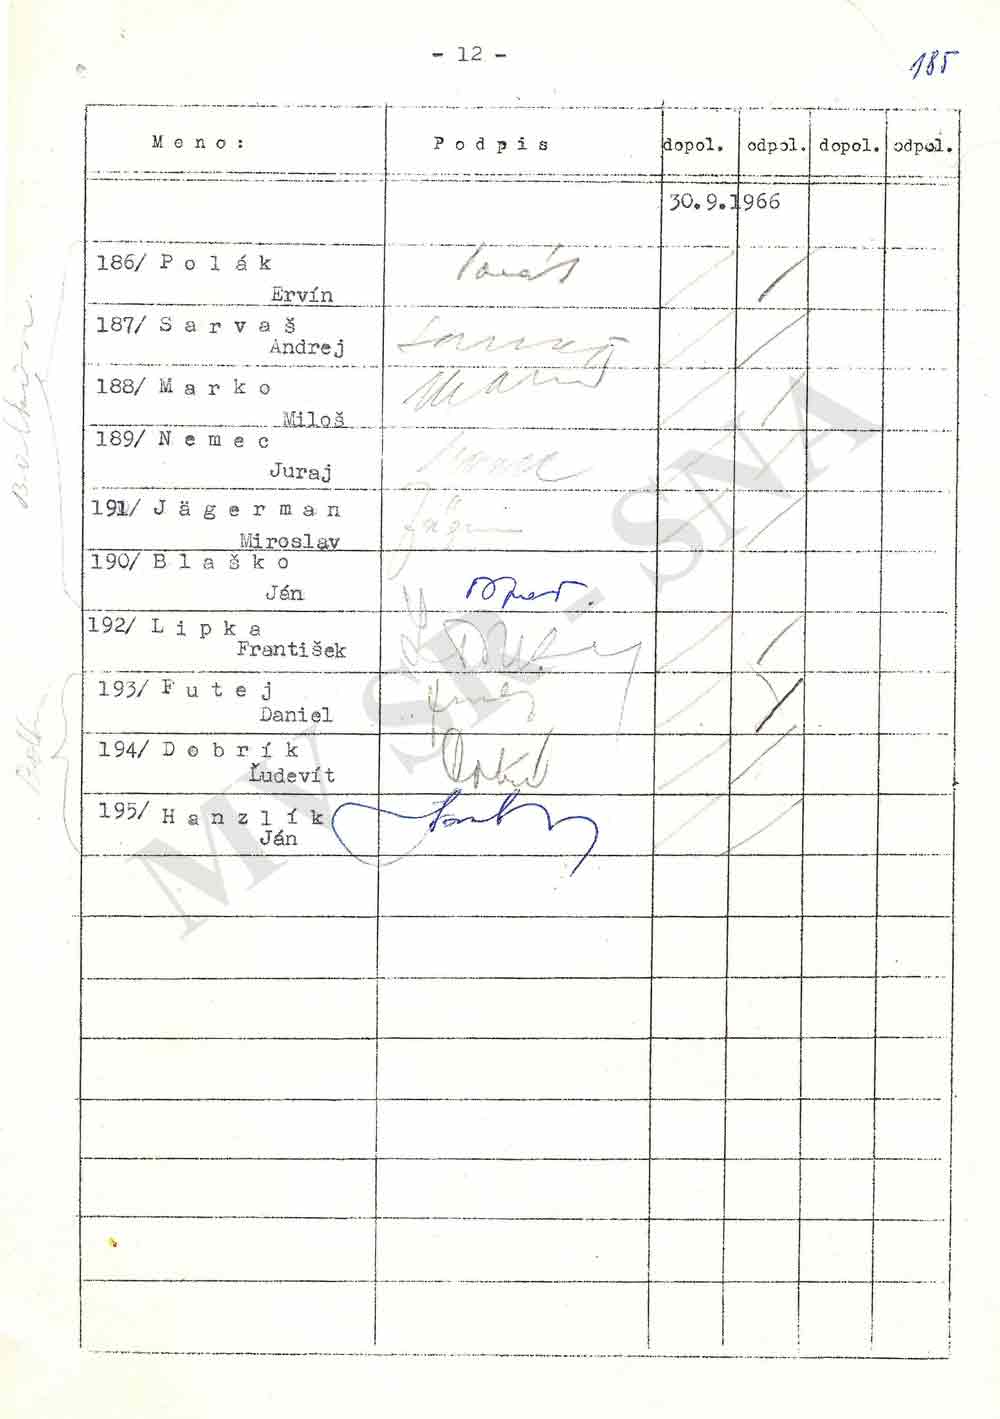 - 12 -
185
Meno: Podpis dopol. odpol. dopol. odpol.
30.9.1966
186/ Polák
Ervín
187/ Sarvaš
Andrej
188/ Marko
Miloš
189/ Nemec
Juraj
191/ Jägerman
Miroslav
190/ Blaško
Ján
192/ Lipka
František
193/ Futej
Daniel
194/ Dobrík
Ľudevít
195/ Hanzlík
Ján
MV SR - SNA